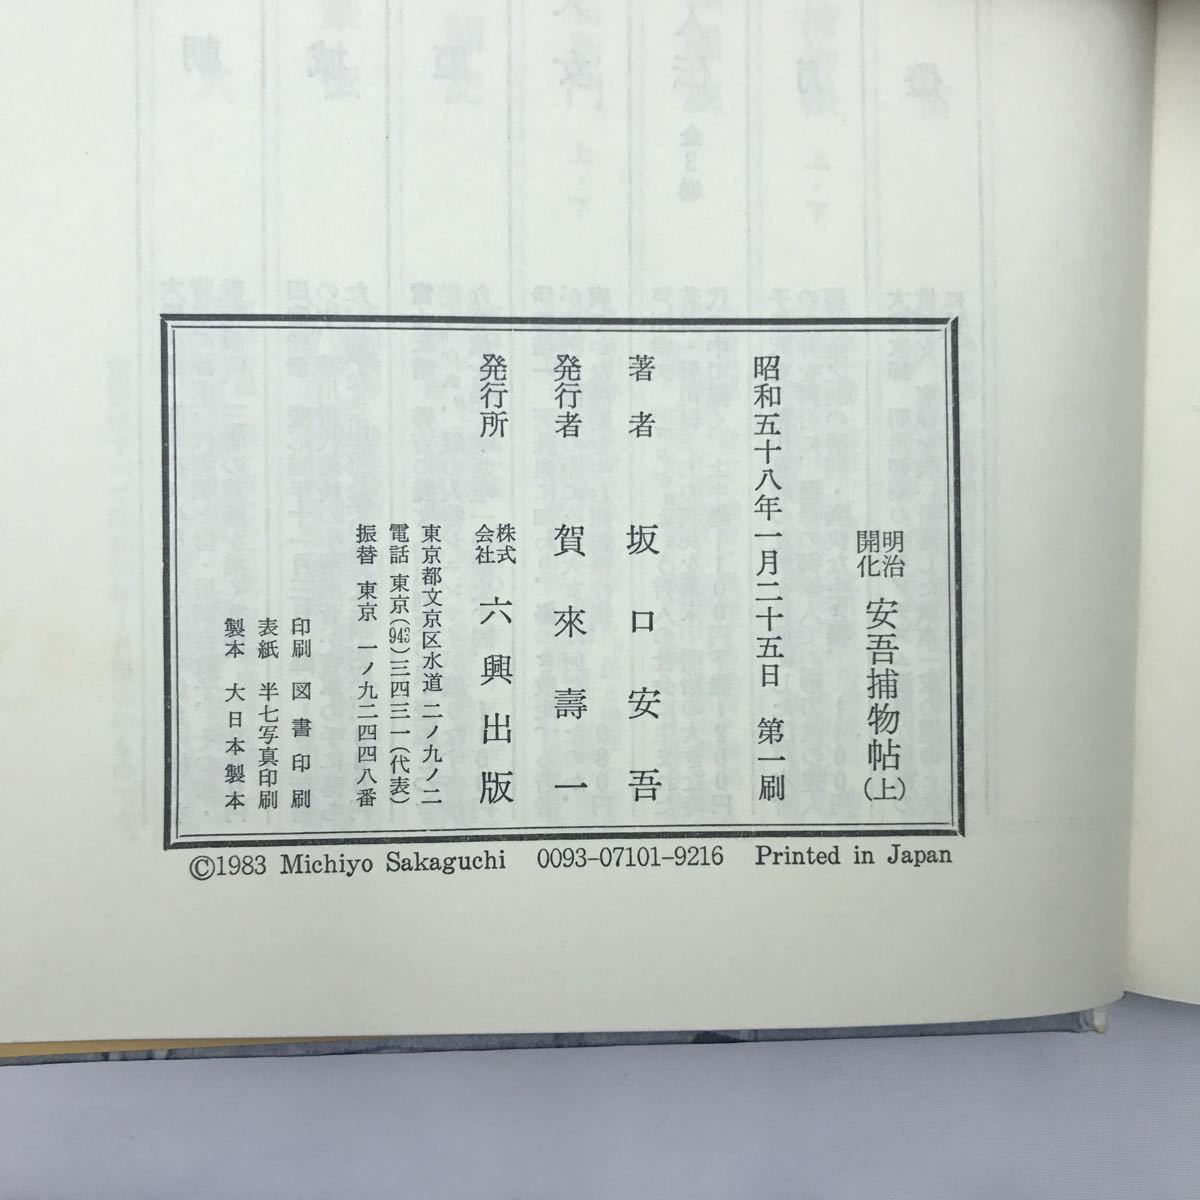 明治開化 安吾捕物帖(上)
昭和五十八年一月二十五日 第一刷
著者 坂口安吾
発行者 賀來壽一
発行所 株式会社 六興出版
東京都文京区水道二ノ九ノ二
電話 東京(943)三四三一(代表)
振替 東京 一ノ九二四四八番
印刷 図書印刷
表紙 半七写真印刷
製本 大日本製本
©1983 Michiyo Sakaguchi 0093-07101-9216 Printed in Japan